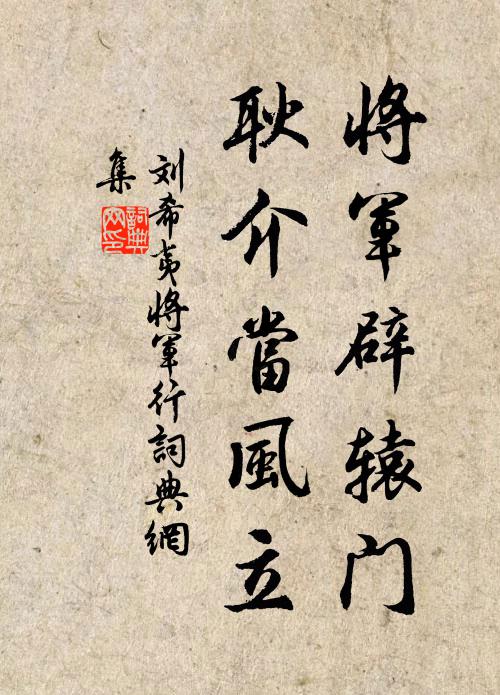 将軍辟辕门
耿介當風立
刘希夷将軍行詞典網
集
詞典网印